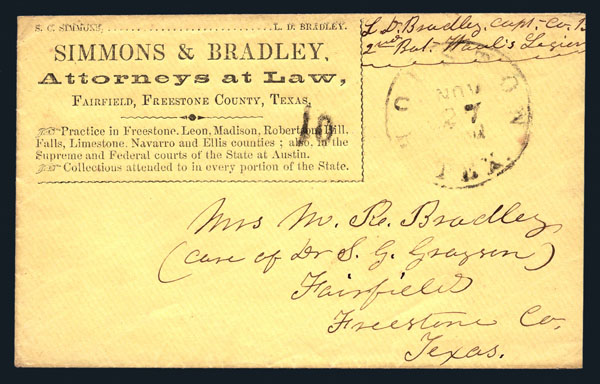 S. C. SIMMONS, L. D. BRADLEY.
SIMMONS & BRADLEY,
Attorneys at Law,
FAIRFIELD, FREESTONE COUNTY, TEXAS,
Practice in Freestone, Leon, Madison, Robertson, Hill,
Falls, Limestone, Navarro and Ellis counties; also, in the
Supreme and Federal courts of the State at Austin.
Collections attended to in every portion of the State.
L. D. Bradley, Capt. Co. B
2nd Bat. Waul's Legion
10
HOUSTON
TEX.
Mrs M. Re. Bradley
(care of Dr S. G. Grayson)
Fairfield
Freestone Co.
Texas.